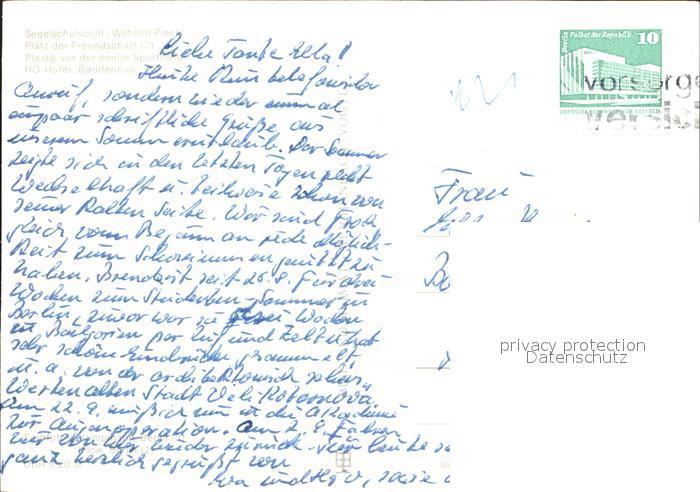 Segelschulschiff „Wilhelm Pieck"
Platz der Freundschaft (2)
Plastik vor der neuen Sporthalle
HO-Hotel
Liebe Tante Ella!
Heute kein telefonischer
Anruf, sondern wieder einmal
ein paar schriftliche Grüße aus
unserem Sommerurlaub. Der Sommer
zeigte sich in den letzten Tagen recht
wechselhaft u. teilweise schon von
seiner kalten Seite. Wir sind froh
gleich vom Beginn an jede Möglich-
keit zum Schwimmen genutzt zu
haben. seit 26.8. für drei
Wochen zum Studenten-Sommer in
Berlin, zuvor war sie zwei Wochen
in Bulgarien per Zug und Zelt u. hat
sehr schöne Eindrücke gesammelt,
u. a. von der architektonisch sehens-
werten alten Stadt Veliko
Am 22.9. muß ich nun in die Akademie
zur Augenoperation. Am 2.9. fahren
wir von hier wieder zurück. Für heute sei
ganz herzlich gegrüßt von
und sowie
Frau
Berlin Palast der Republik
10
vorsorge
versich
DDR
privacy protection
Datenschutz